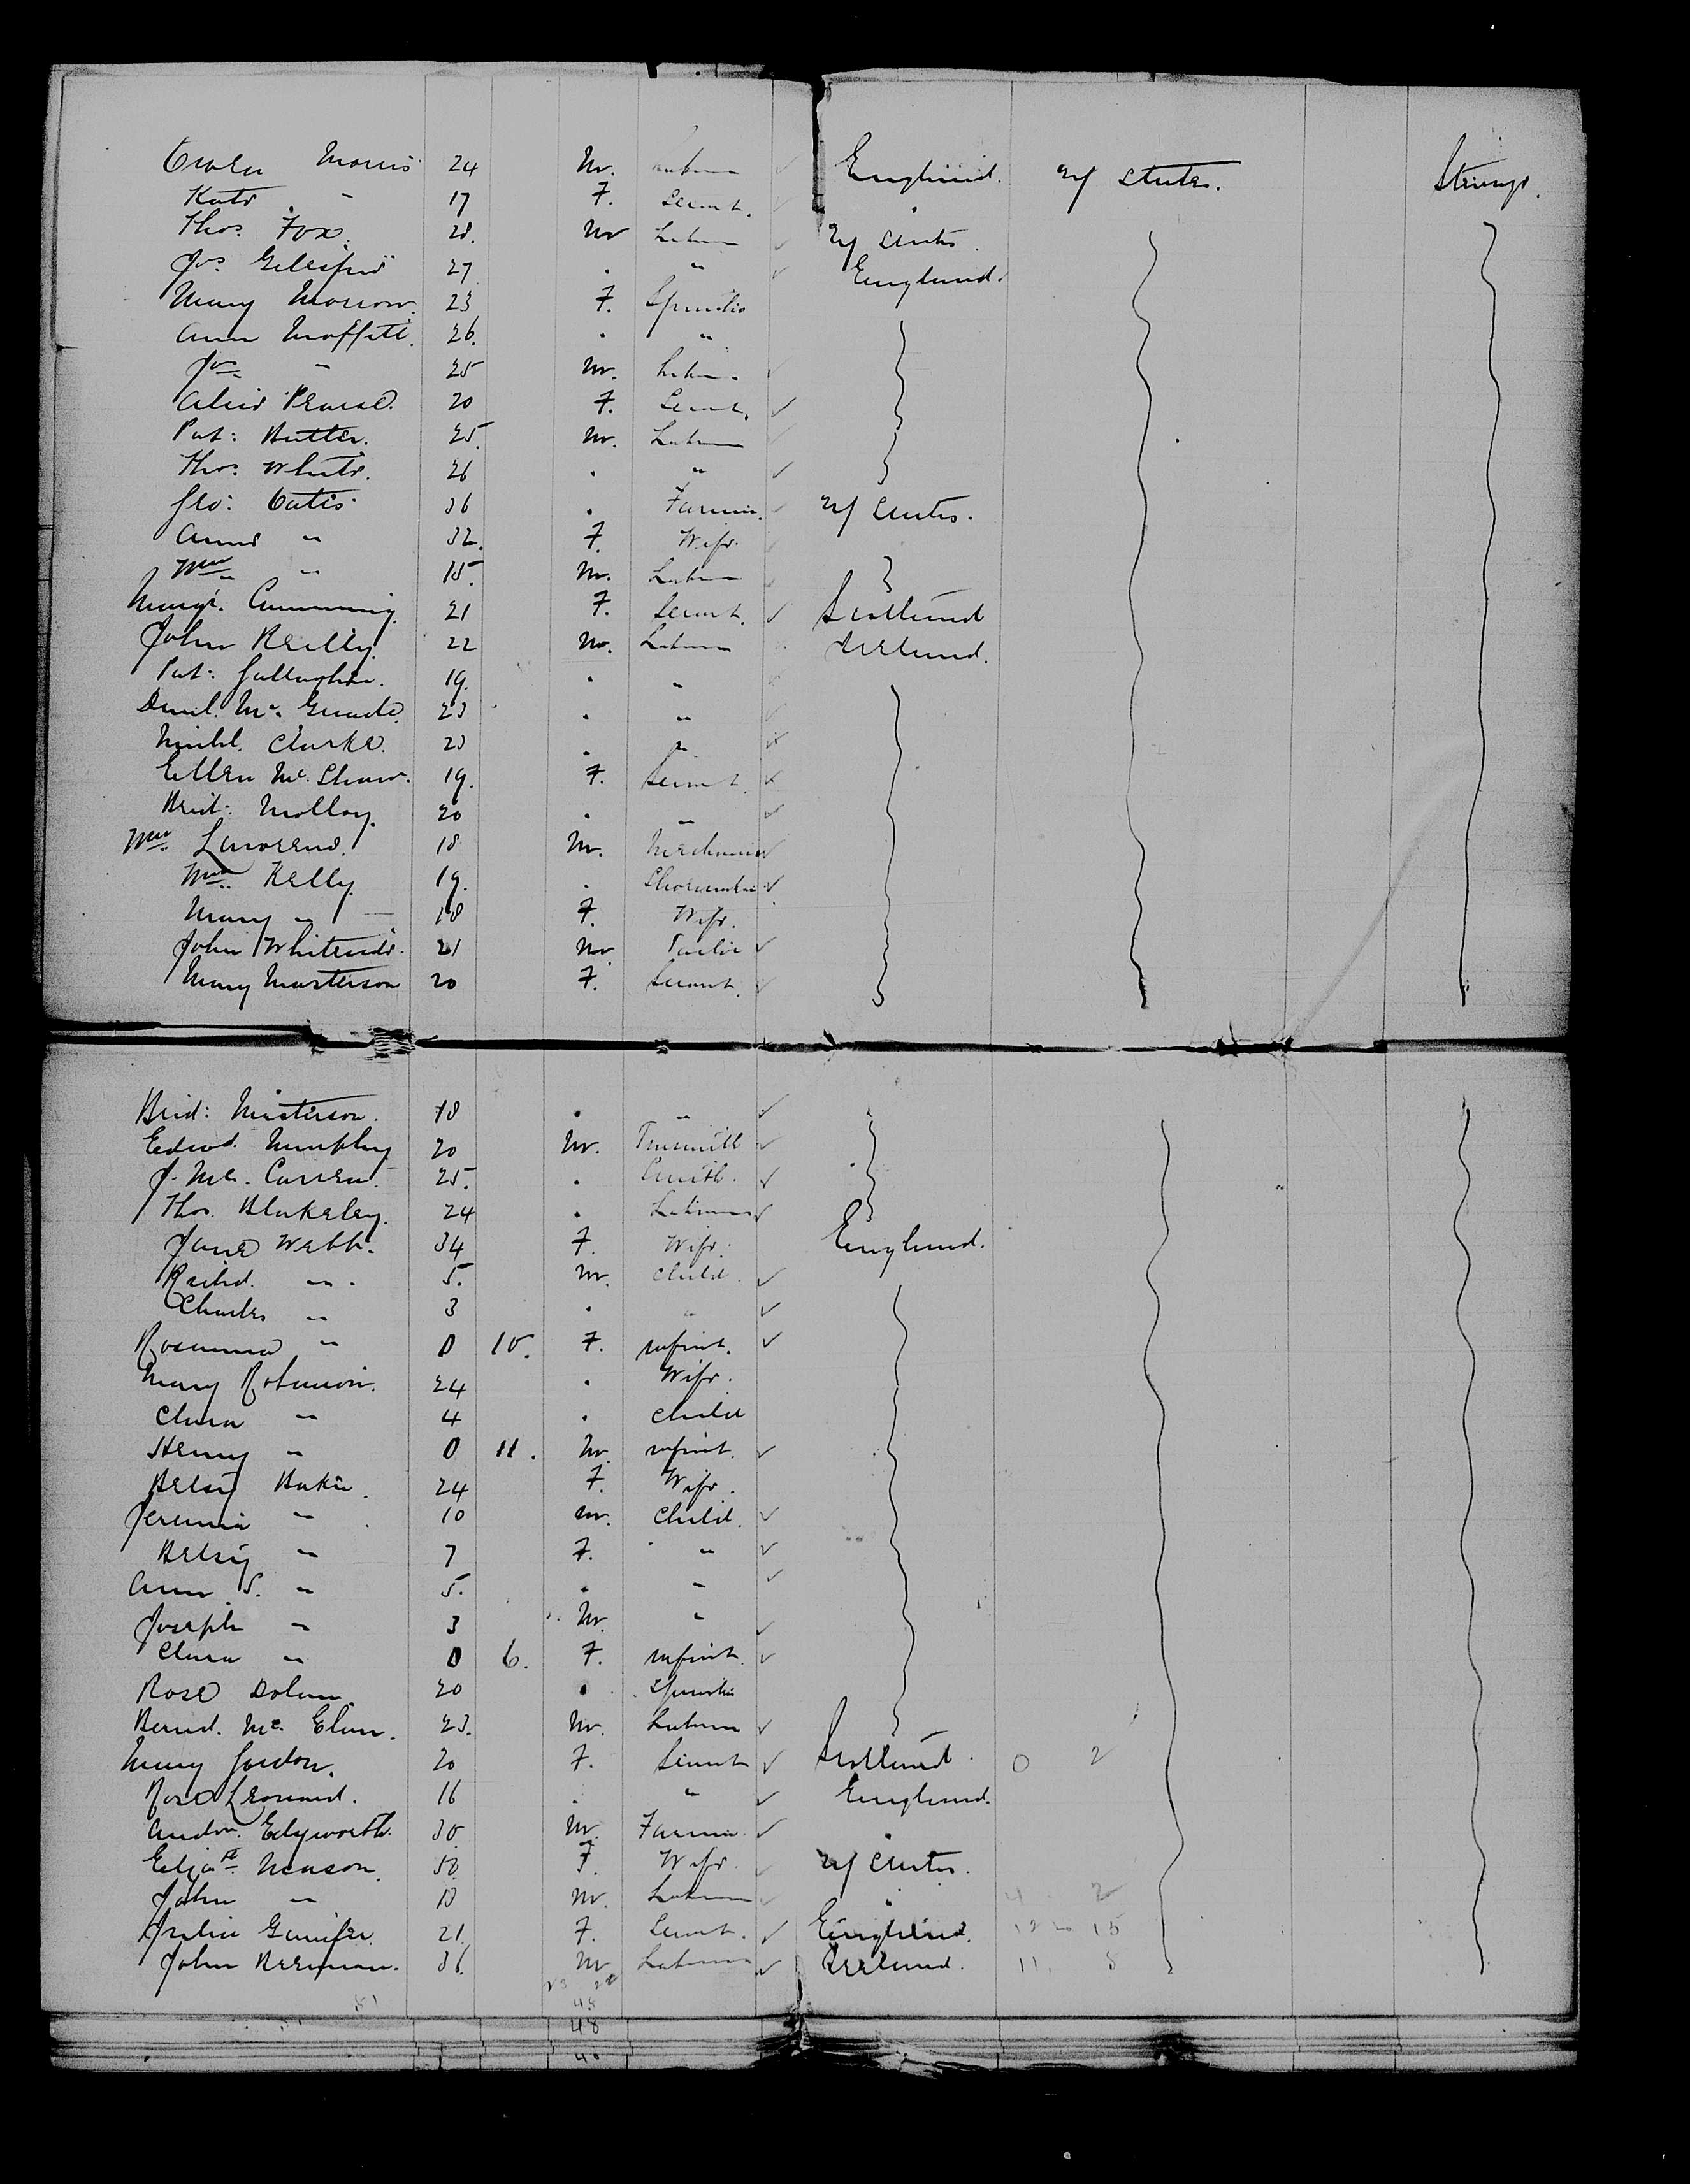 Owen Morris 24 M. Laborer England. U/ States. Steerage.
Kate " 17 F. Servnt. "
Thos. Fox. 28. M Laborer U/ States.
Jas. Gillespie 27 . " England.
Mary Morrow. 23 F. Spinster
Ann Moffett. 26. . "
Jas. " 25 M. Laborer
Alice Pearce. 20 F. Servnt.
Pat: Butler. 25. M. Laborer
Thos. White. 26 . "
Geo: Oates. 36 . Farmer. U/ States.
Anne " 32. F. Wife.
Wm. " 15. M. Laborer
Margt. Cumming. 21 F. Servnt. Scotland
John Reilly. 22 M. Laborer Ireland.
Pat: Gallagher. 19. . "
Danl. Mc. 23 . "
Michl. Clarke. 23 . "
Ellen Mc. Shaw. 19. F. Servnt.
Brid: Molloy. 20 . "
Wm. Lawrence. 18 M. Mechanic
Wm. Kelly. 19. . Shoemaker
Mary " 18 F. Wife.
John Whiteside. 21 M. Tailor
Mary Masterson 20 F. Servant.
Brid: Masterson. 18 . "
Edwd. Murphy 20 M. Tinsmith
J. Mc. Carren. 25. . Smith.
Thos. Blakeley. 24 . Laborer
Jane Webb. 34 F. Wife. England.
Richd. " 5. M. Child.
Charles " 3 . "
Rosanna " 0 10. F. Infant.
Mary Robinson. 24 . Wife.
Clara " 4 . Child
Henry " 0 11. M. Infant.
Betsy Baker. 24 F. Wife.
Jeremia " 10 M. Child.
Betsy " 7 F. "
Ann S. " 5. . "
Joseph " 3 M. "
Clara " 0 6. F. Infant.
Rose Dolan. 20 . Spinster
Bernd. Mc. 23. M. Laborer
Mary Gordon. 20 F. Servnt Scotland. 0 2
Rose Leonard. 16 . " England.
Andw. Edgworth. 30. M. Farmer. "
Eliza. Menson. 50. F. Wife. U/ States.
John " 18 M. Laborer " 4 2
Julia 21. F. Servnt. England. 12 15
John Brennan. 36. M Laborer Ireland. 11. 8
81 48
48